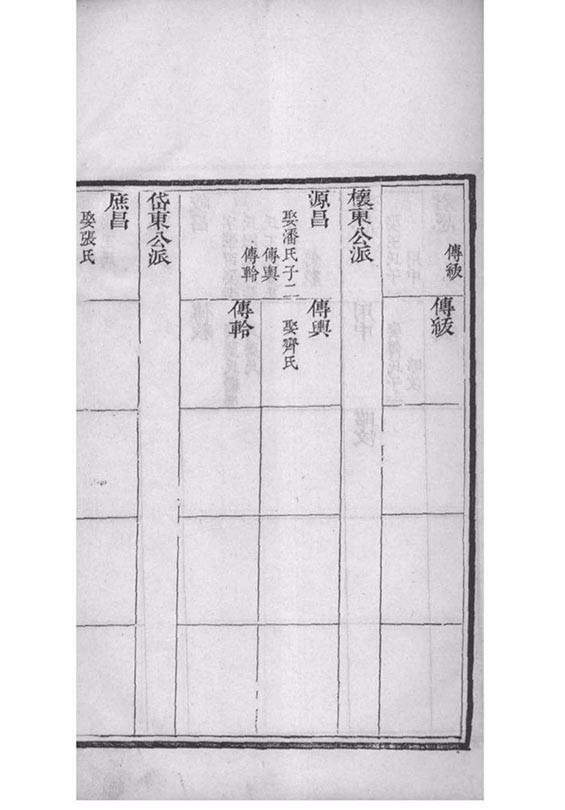 傳紱
傳紱
櫰東公派
源昌
娶潘氏子二
傳輿
傳軨
傳輿
娶齊氏
傳軨
岱東公派
庶昌
娶張氏